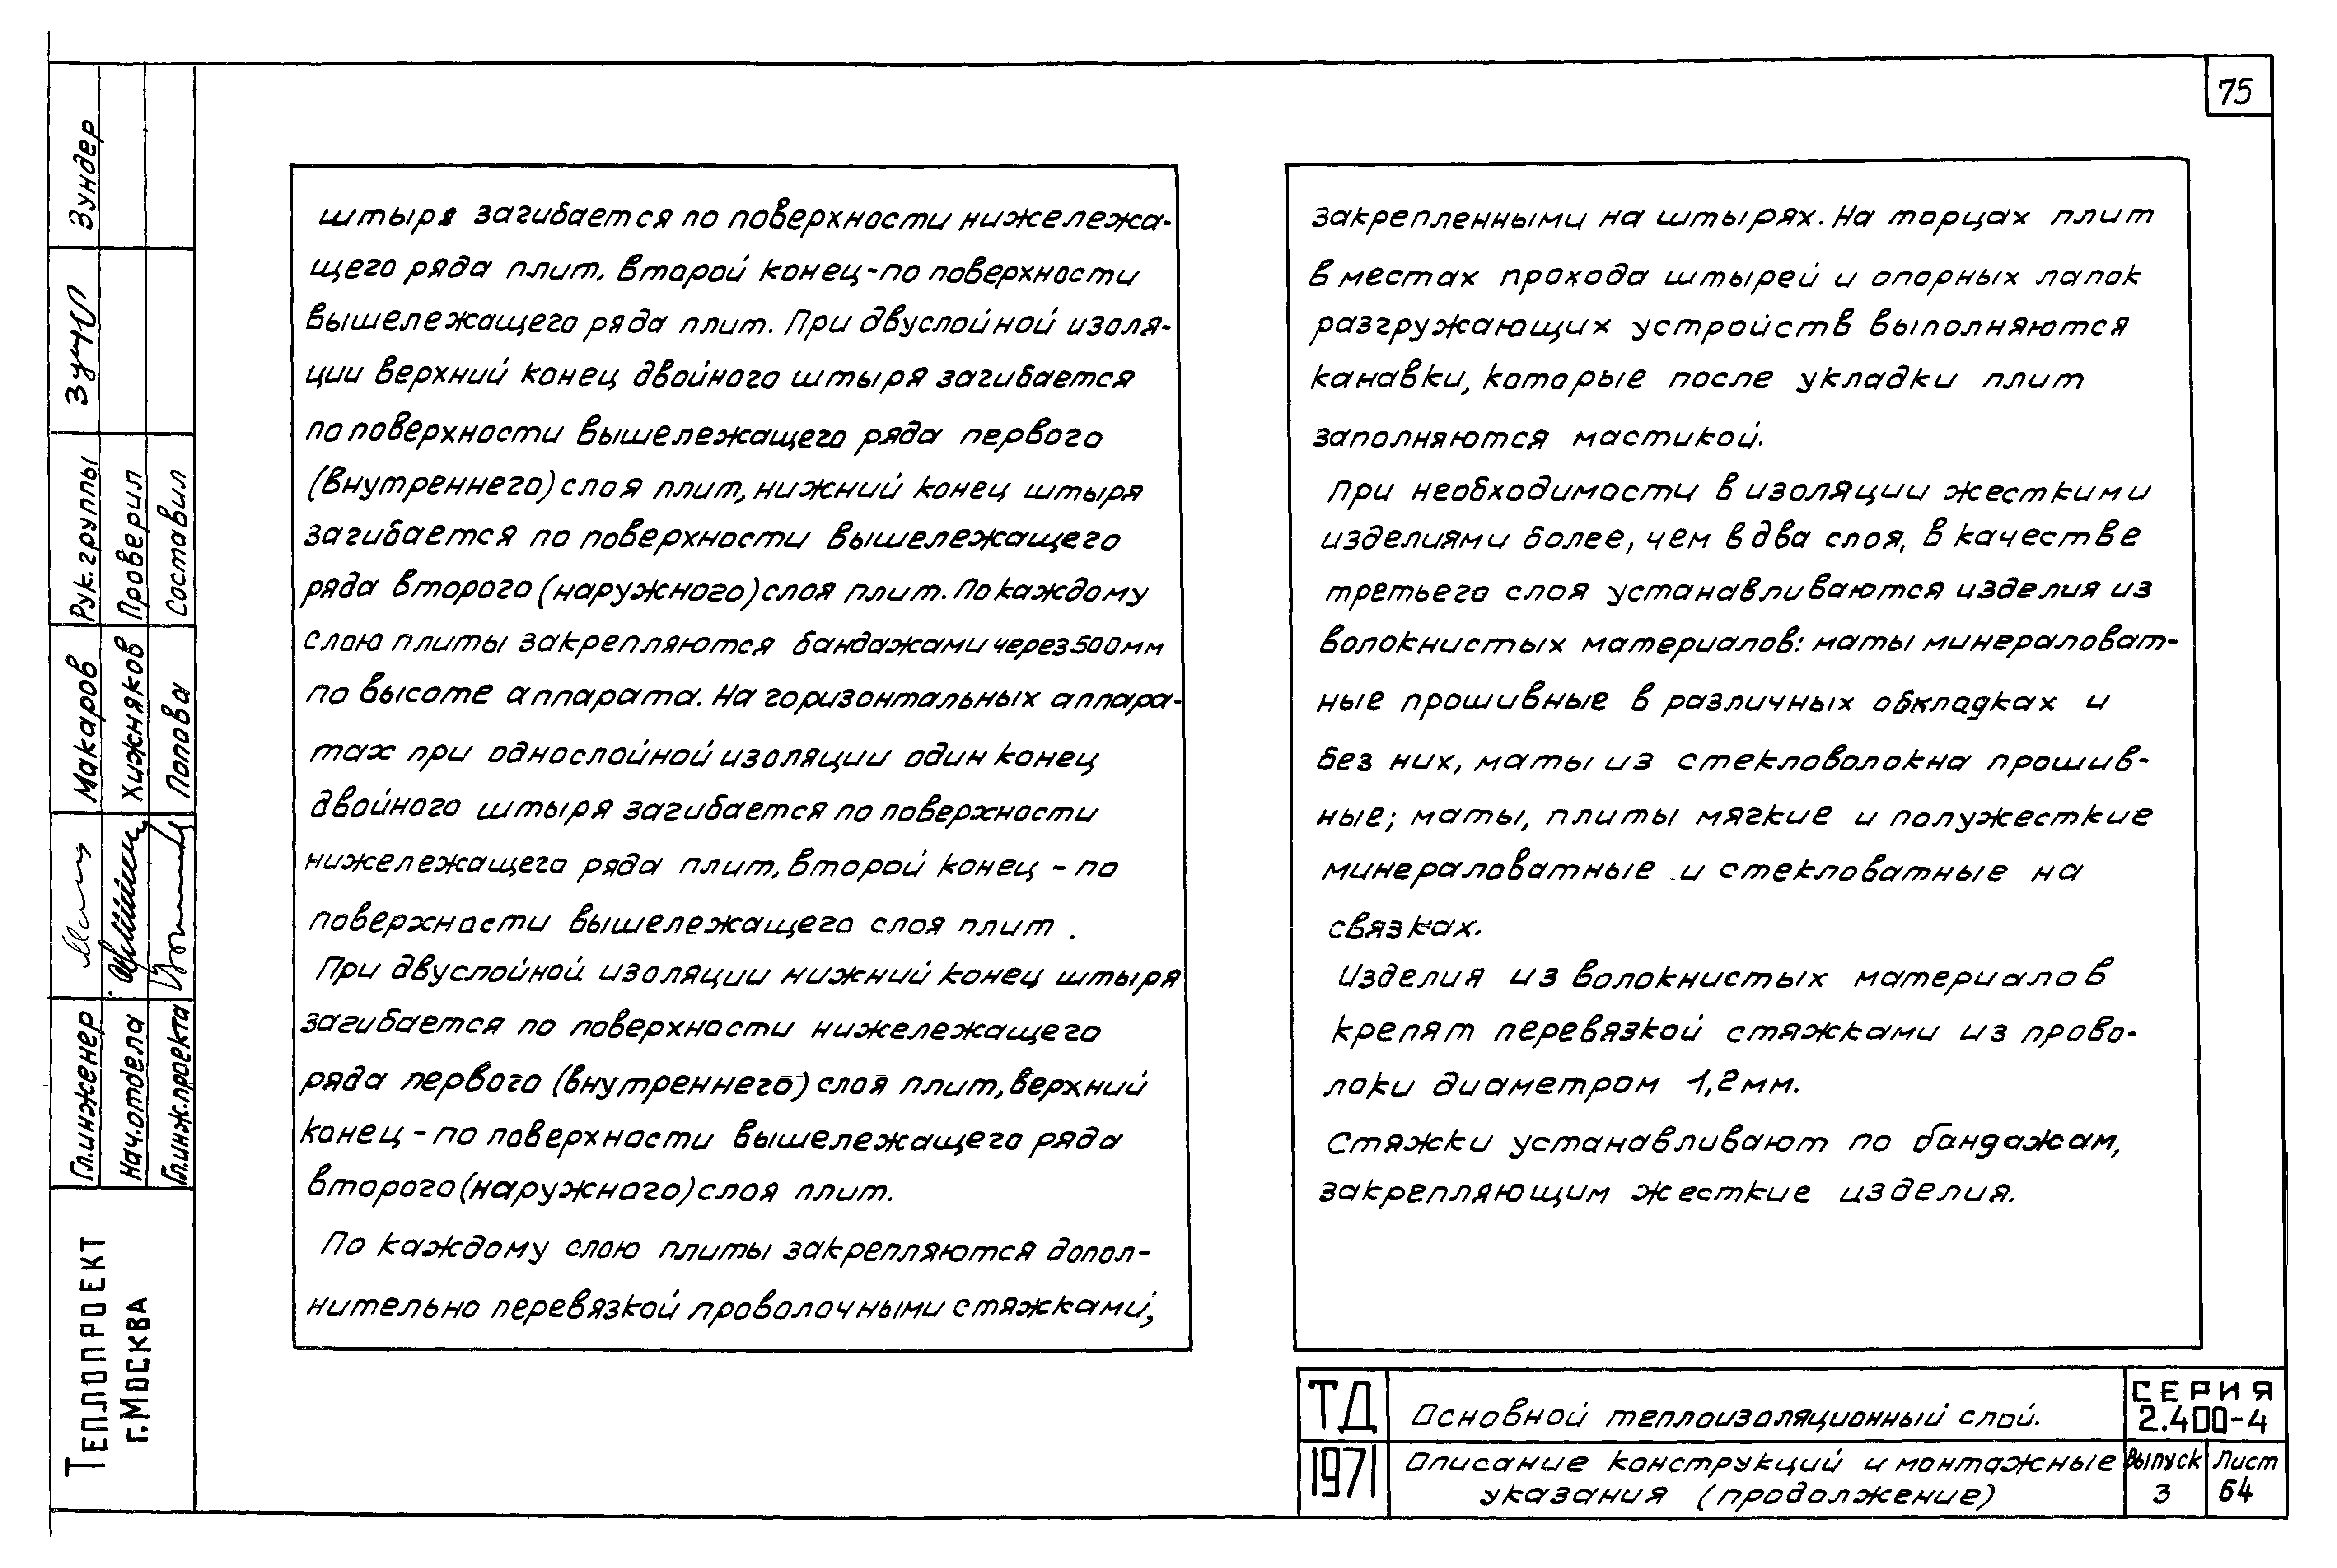 75
штыря загибается по поверхности нижележа-
щего ряда плит, второй конец-по поверхности
вышележащего ряда плит. При двуслойной изоля-
ции верхний конец двойного штыря загибается
по поверхности вышележащего ряда первого
(внутреннего) слоя плит, нижний конец штыря
загибается по поверхности вышележащего
ряда второго (наружного) слоя плит. По каждому
слою плиты закрепляются бандажами через 500мм
по высоте аппарата. На горизонтальных аппара-
тах при однослойной изоляции один конец
двойного штыря загибается по поверхности
нижележащего ряда плит, второй конец - по
поверхности вышележащего слоя плит.
При двуслойной изоляции нижний конец штыря
загибается по поверхности нижележащего
ряда первого (внутреннего) слоя плит, верхний
конец - по поверхности вышележащего ряда
второго (наружного) слоя плит.
По каждому слою плиты закрепляются допол-
нительно перевязкой проволочными стяжками,
закрепленными на штырях. На торцах плит
в местах прохода штырей и опорных лапок
разгружающих устройств выполняются
канавки, которые после укладки плит
заполняются мастикой.
При необходимости в изоляции жесткими
изделиями более, чем в два слоя, в качестве
третьего слоя устанавливаются изделия из
волокнистых материалов: маты минераловат-
ные прошивные в различных обкладках и
без них, маты из стекловолокна прошив-
ные; маты, плиты мягкие и полужесткие
минераловатные и стекловатные на
связках.
Изделия из волокнистых материалов
крепят перевязкой стяжками из прово-
локи диаметром 1,2мм.
Стяжки устанавливают по бандажам,
закрепляющим жесткие изделия.
Гл.инженер Макаров Рук.группы Зундер
Нач.отдела Хижняков Проверил
Гл.инж.проекта Попова Составил
Теплопроект
г.Москва
ТД
1971
Основной теплоизоляционный слой.
Описание конструкций и монтажные
указания (продолжение)
Серия
2.400-4
Выпуск
3
Лист
64